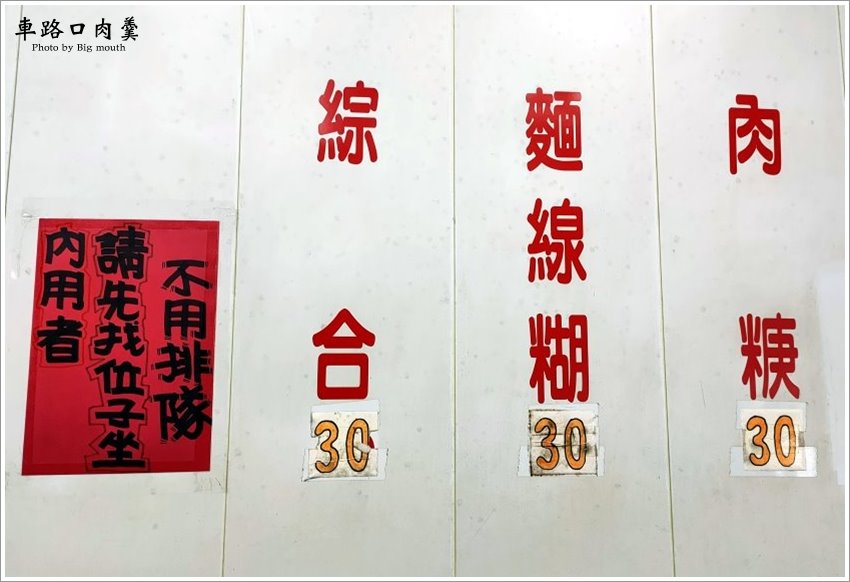 車路口肉羹
Photo by Big mouth
內用者
請先找位子坐
不用排隊
綜合
30
麵線糊
30
肉
30